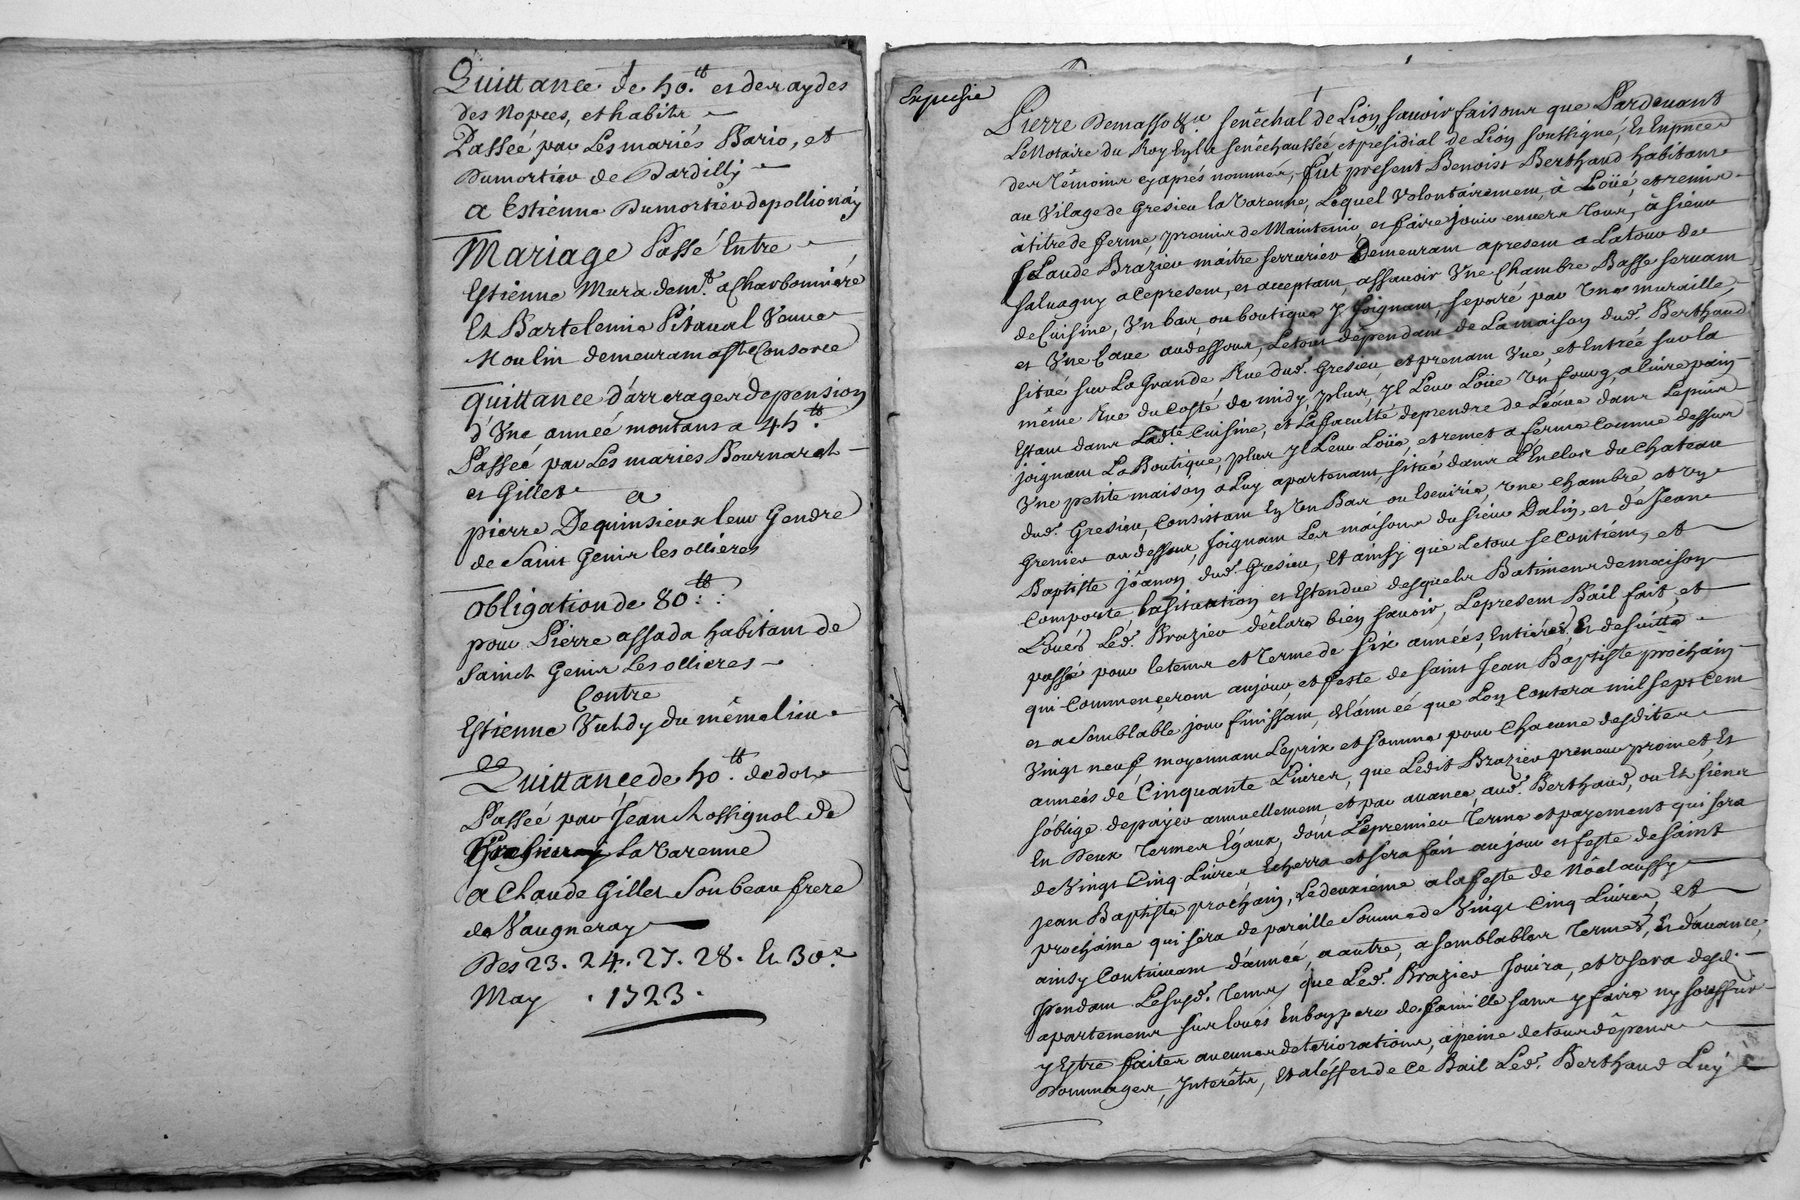 Quittance de 50.tt et des aydes
des Nopces, et habits
Passéé par Les mariés Bario, et
Dumortier de Dardilly
a Estienne Dumortier de pollionáy
Mariage Passé Entre
Estienne Mura demt. a Charbonniére
Et Bartelemie Pitaval Veuve
Moulin demeurant aste Consorce
quittance d'arrerages de pension
d'Une année montant a 45.tt
Passeé par Les mariés Bournarel
et Gillet a
pierre Dequinsieux leur Gendre
de Saint Genis les ollieres
obligation de 80.tt
pour Pierre assada habitant de
Sainct Genis Les ollieres
Contre
Estienne du méme lieu
Quittance de 50.tt de dot
Passéé par Jean Rossignol de
La Varenne
a Claude Gillet Son beau frere
de Vaugneray
Des 23. 24. 27. 28. Et 30e
May . 1723.
Expedie
Pierre Demasso &c. senêchal de Lion, sauoir faisons que Pardeuant
Le Notaire du Roy En la senêchaussée et presidial de Lion soussigné, Et En pnce
des témoins cy aprés nommés, fut présent Benoist Berthaud habitant
au Vilage de Gresieu la Varenne, Lequel Volontairement, à Loüé, et remis
à titre de ferme, promis de Maintenir et faire Jouir enuers tous, à sieur
Claude Brazier maitre serrurier Demeurant apresent a Latour de
saluagny a ce present, et acceptant, assauoir Vne Chambre Basse seruant
de Cuisine, Vn bas, ou boutique y Joignant, separé par Vne muraille,
et Vne Caue au dessous, Le tout dépendant de La maison dud. Berthaud
situé sur La Grande Rue dud. Gresieu et prenant Vuë, et Entrée sur la
même Rue du costé de midy, plus, Il Leur Loüe Vn fourg a cuire pain
Estant dans Ladte Cuisine, et La faculté de prendre de Leaue dans Le puis
joignant La Boutique, plus Il Leur Loüe, et remet a ferme Comme dessus
Vne petite maison a Luy apartenant, situé dans L'Enclos du Chateau
dud. Gresieu, Consistant En Vn Bas ou Escuirie, Vne Chambre et Vn
Grenier au dessus, Joignant Les maisons du sieur Dalin, et de Jean
Baptiste jôanon dud. Gresieu, Et ainsy que Le tout se contient, et
Comporte, La situation et Estendue desquels Batiments de maison
Loués Led. Brazier déclare bien sauoir, Le present Bail fait, et
passé pour le tems et terme de six années, Entiéres, Et de suitte
qui Commençeront aujour et feste de saint Jean Baptiste prochain
et a semblable jour finissant, de L'année que Lon Contera mil sept Cent
Vingt neuf moyennant Le prix et somme pour Chacune desdites
années de Cinquante Liures, que Ledit Brazier preneur promet, Et
s'oblige de payer annuellement et par auance, aud. Berthaud, ou Et siens
En Deux Termes Egaux, dont Le premier Terme et payement qui sera
de Vingt Cinq Liures Echerra et sera fait au jour et feste de saint
Jean Baptiste prochain, Le deuxiéme a la feste de Nôel aussy
prochaine qui séra de pareille Somme de Vingt Cinq Liures, et
ainsy Continuant d'année, a autre, a semblables Termes, Et d'auance,
pendant Le susd. Tems, que Led. Brazier Jouira, et Vsera desd.
apartements sus loués En bon pere de famille sans y faire ny souffrir
y Estre faites aucunes deteriorations, a peine de tous dêpens
Dommages, Interêts, Et a l'effet de Ce Bail Led. Berthaud Luy